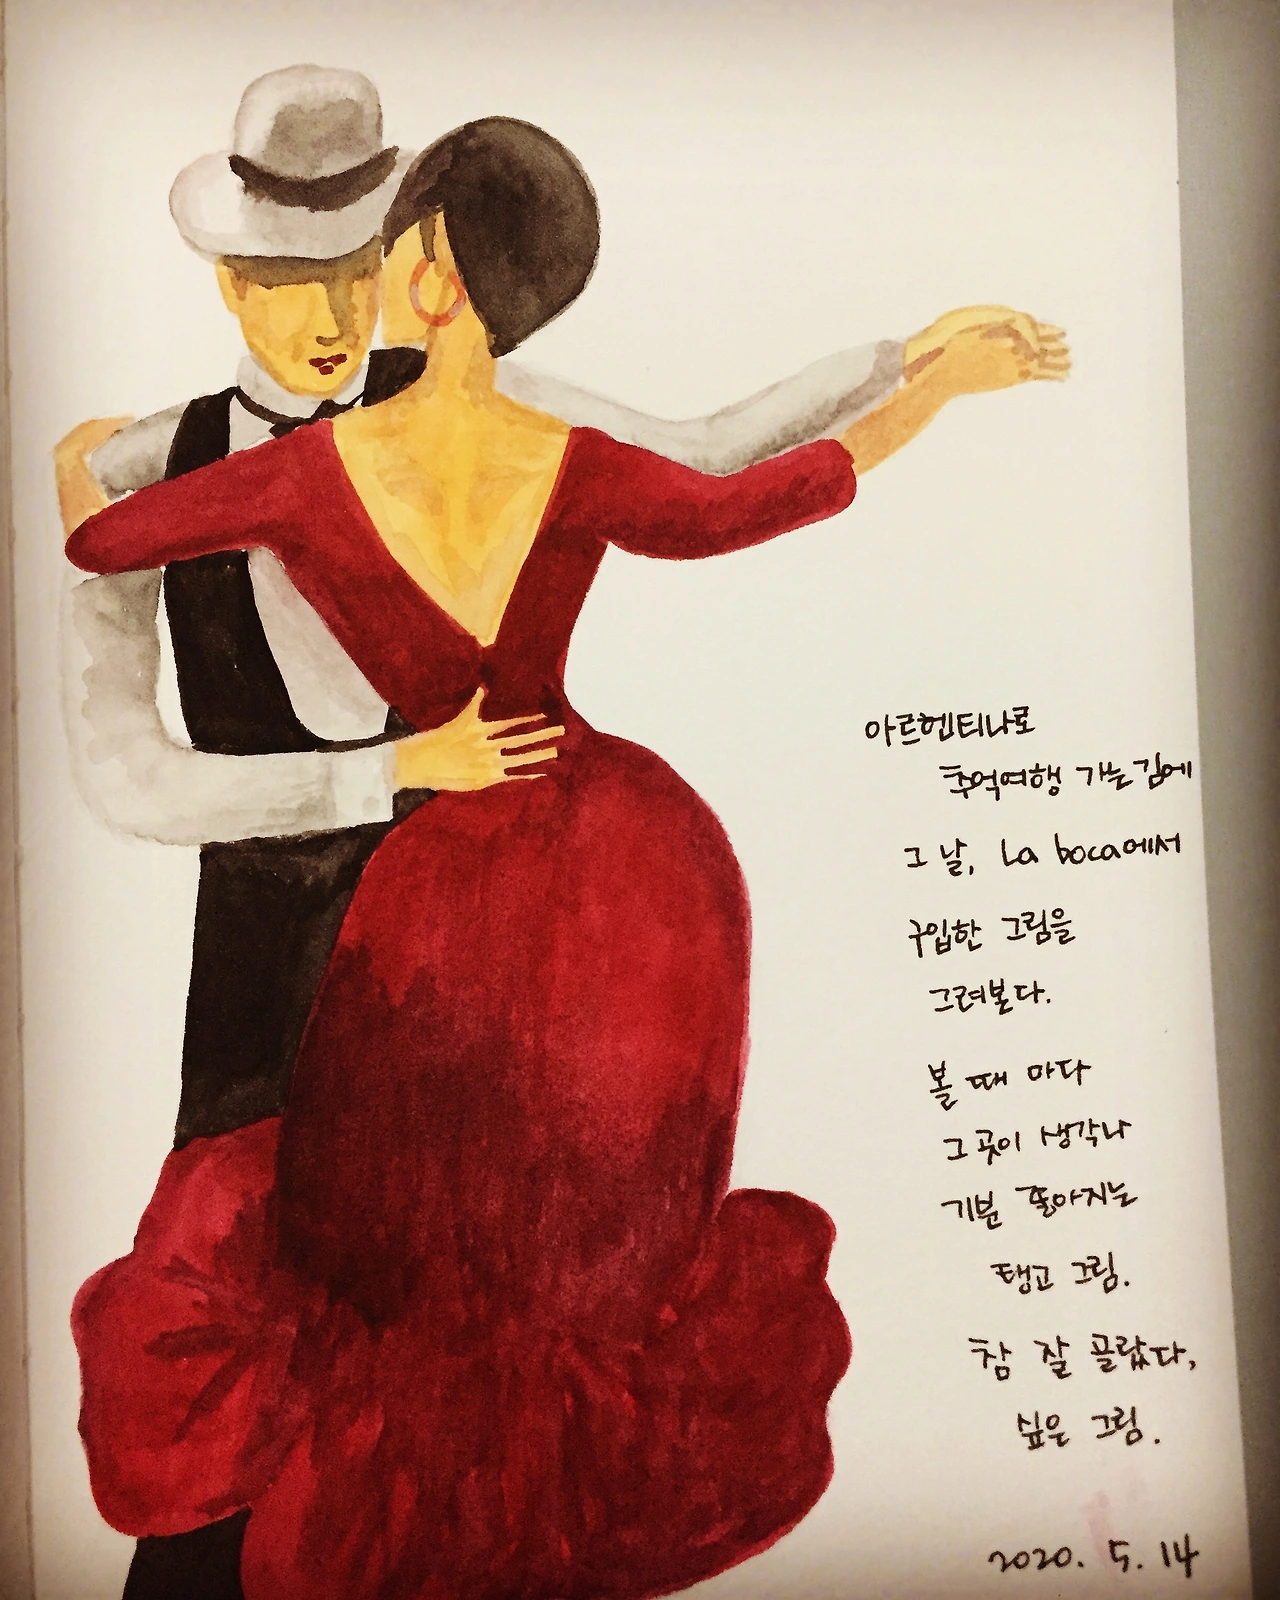 아르헨티나로
추억여행 가는김에
그 날, La boca에서
구입한 그림을
그려본다.
볼 때 마다
그 곳이 생각나
기분 좋아지는
탱고 그림.
참 잘 골랐다,
싶은 그림.
2020. 5. 14